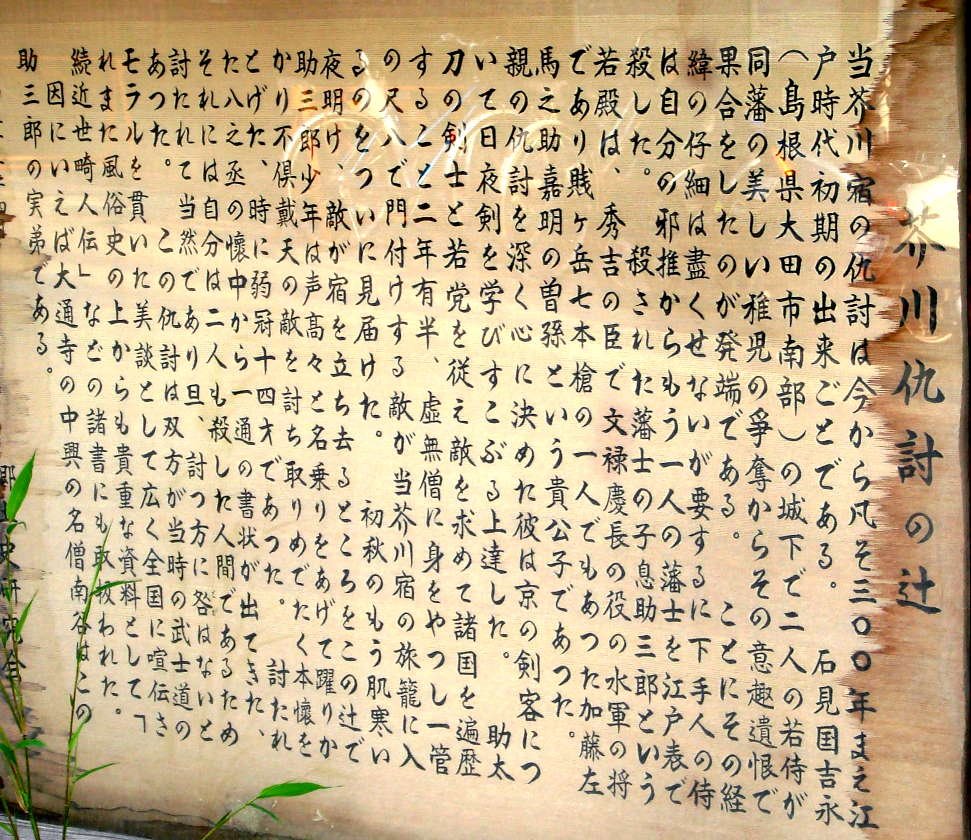 芥川仇討の辻
当芥川宿の仇討は今から凡そ三〇〇年まえ江
戸時代初期の出来ごとである。 石見国吉永
（島根県大田市南部）の城下で二人の若侍が
同藩の美しい稚児の爭奪からその意趣遺恨で
果合をしたのが発端である。 ことにその経
緯の仔細は盡くせないが要するに下手人の侍
は自分の邪推からもう一人の藩士を江戸表で
殺した。 殺された藩士の子息助三郎という
若殿は、秀吉の臣で文禄慶長の役の水軍の将
であり賤ヶ岳七本槍の一人でもあつた加藤左
馬之助嘉明の曽孫という貴公子であつた。
親の仇討を深く心に決めた彼は京の剣客につ
いて日夜剣を学びすこぶる上達した。 助太
刀の剣士と若党を従え敵を求めて諸国を遍歴
すること二年有半、虚無僧に身をやつし一管
の尺八で門付けする敵が当芥川宿の旅籠に入
るのをついに見届けた。 初秋のもう肌寒い
夜明け、敵が宿を立ち去るところをこの辻で
助三郎少年は声高々と名乗りをあげて躍りか
かり不倶戴天の敵を討ち取りめでたく本懐を
とげた、時に弱冠十四才であつた。 討たれ
た八之丞の懐中から一通の書状が出てきた、
それには自分は二人も殺した人間であるため
討たれて当然であり旦、討つ方に咎はないと
あつた。 この仇討は双方が当時の武士道の
モラルを貫いた美談として広く全国に喧伝さ
れまた風俗史の上からも貴重な資料として「
続近世畸人伝」などの諸書にも取扱われた。
因にいえば大通寺の中興の名僧南谷はこの
助三郎の実弟である。
史研究会